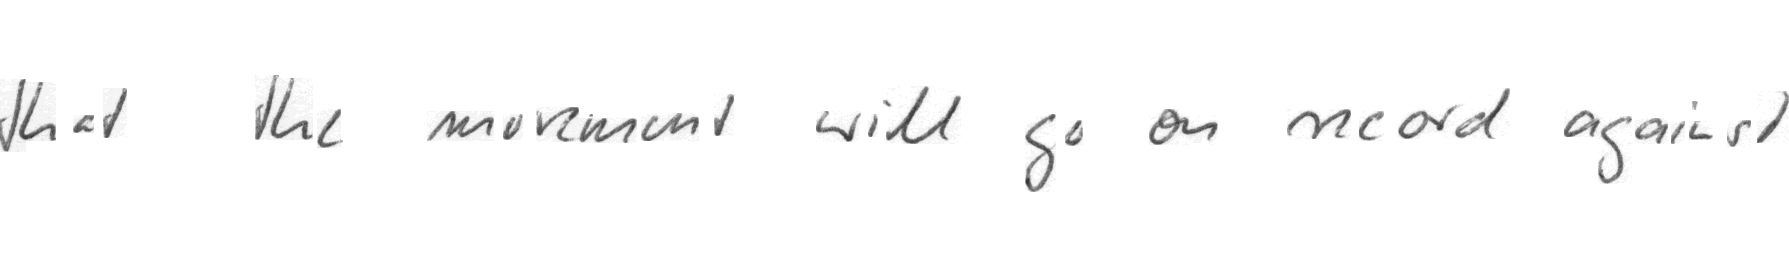 that the movement will go on record against